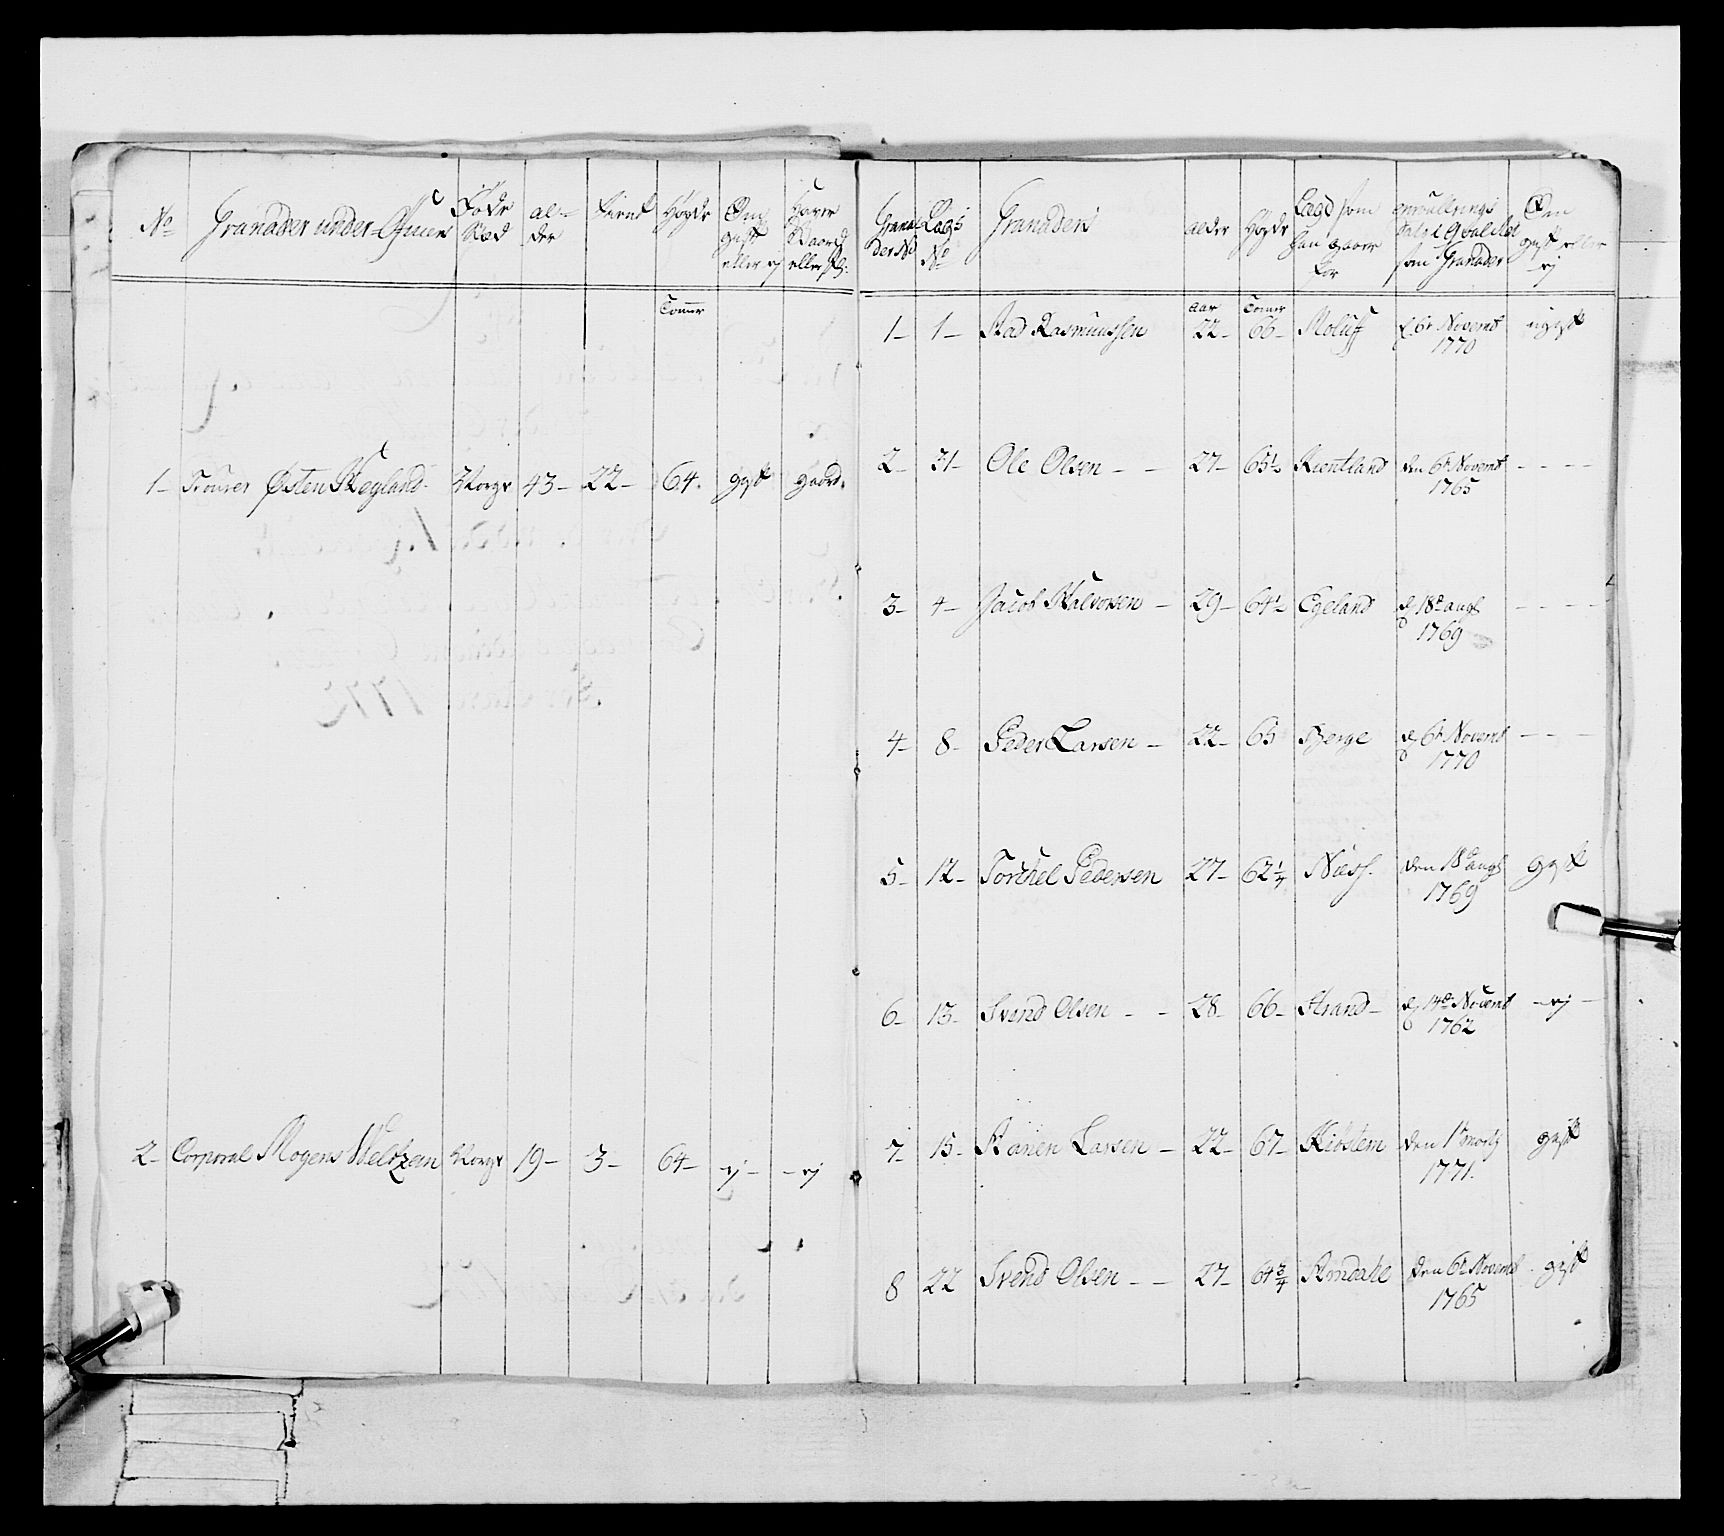 No Granader under-Officier Föde Stæd al- der tient Høyde Om gift eller ej Haver Gaard eller Pl:
Tommer
1- Fourer Østen Skegland Norge 43- 22- 64. gift gaard.
2- Corporal Mogens Weltzen Norge 19- 3- 64- ej- -ej
Grana- der No Lægs No Granaders alder Høyde Lægd som han staaer for som Granader Om gift eller ej
Aar Tomer
1- 1- Aad Rasmussen 22- 66- Moluff d 6t Novemb 1770 ugift
2- 31- Ole Olsen - - 27- 65½ Kientland den 6t Novemb 1765 - - - -
3- 4- Jacob Halvorsen - 29- 64½ Egeland d 18de augt 1769 - - - -
4- 8- Peder Larsen - 22- 65 Berge d 6t Novemb 1770 - - -
5- 12- Torchel Pedersen 27- 62¼ Næss. den 18de augt 1769 gift
6- 13- Svend Olsen - - 28- 66- Strand- d 14de Novemb 1762 -ej-
7- 15- Aanen Larsen - 22- 67- Skibstem den 1t 1771. gift
8 22 Svend Olsen - - 27- 64¾ Amdahl den 6t Novemb 1765 gift